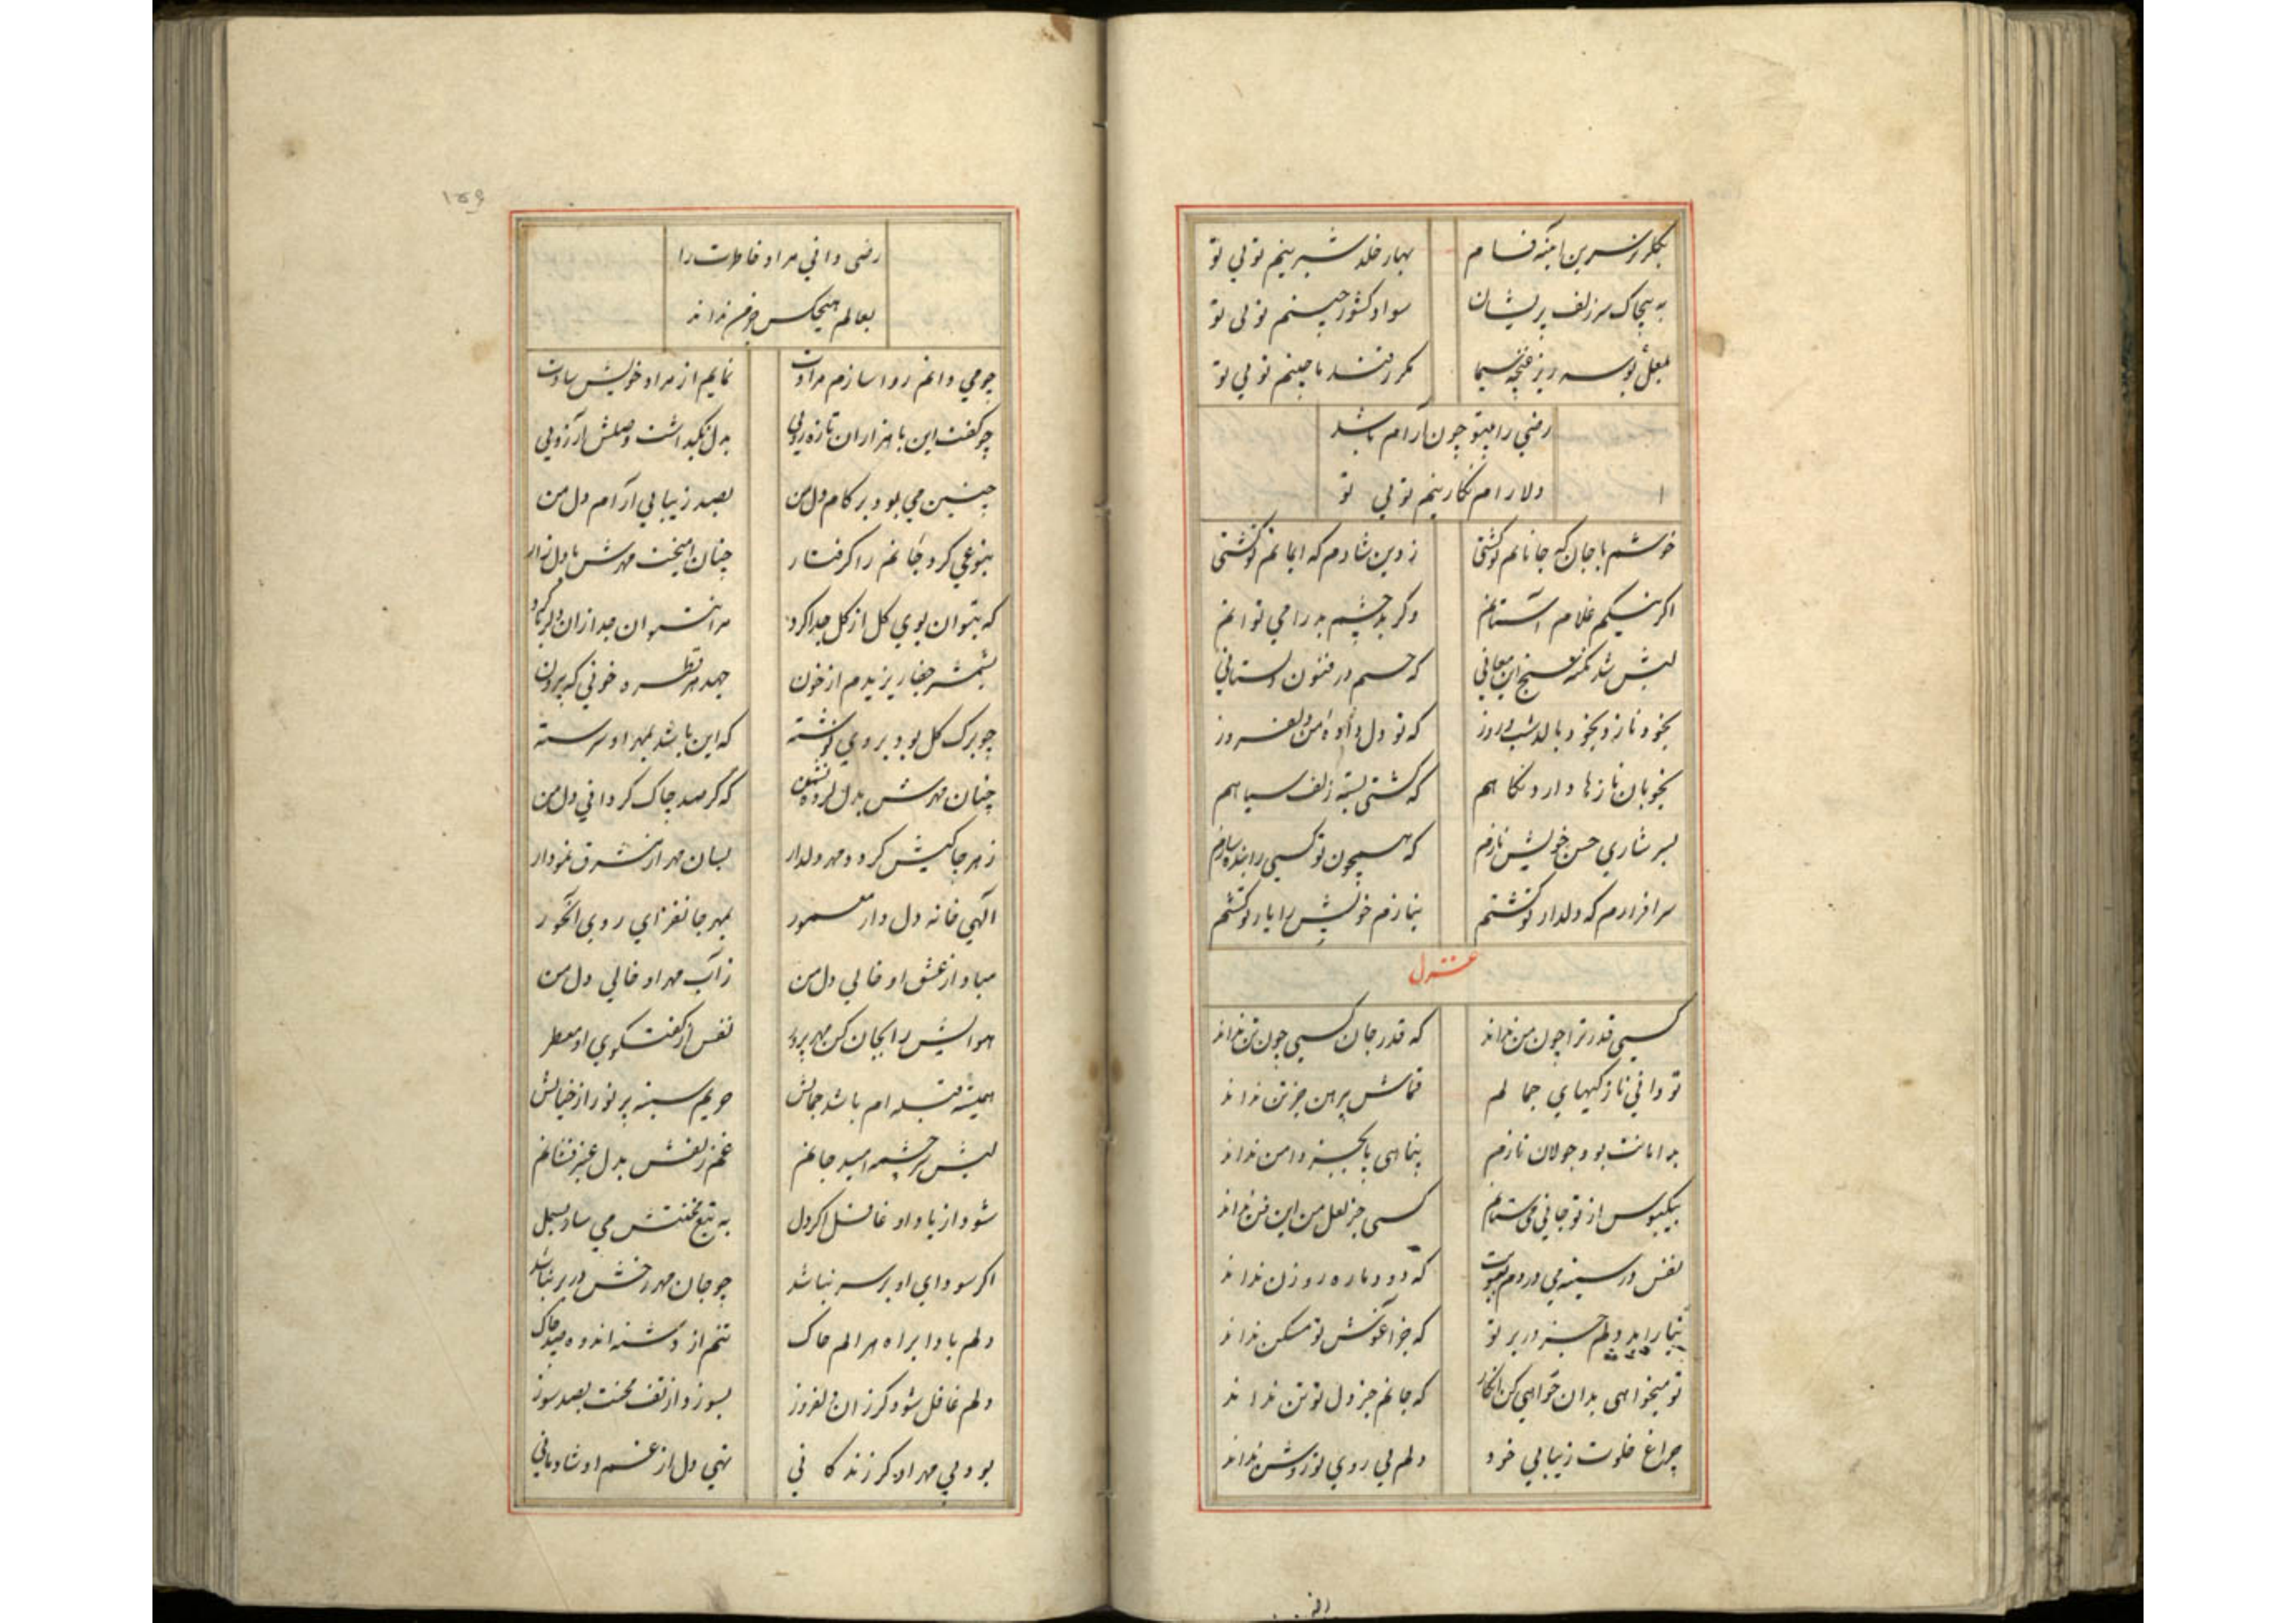 بکلزار نسرین آینه فام بهار خلد شیرینم توئی تو
به پیچاک سر زلف پریشان سواد کشور چینم توئی تو
بلعل بوسه ریز غنچه سیما مکرر قند ما چینم توئی تو
رضی را بیتو چون آرام باشد
دلارام نکارینم توئی تو
خوشم با جان که جانانم تو کشتی ز دین شادم که ایمانم تو کشتی
اکر نیکم غلام آستانم وکر بد چشم بد را می توانم
لبش شد نکته سنج این معانی که جسم در فنون دلستانی
بخود نازد بخود بالد شب و روز که تو دل داده من دلفروز
بخوبان نازها دارد نکاهم که کشتی بسته زلف سیاهم
بسرشاری حسن خویش نازم که همچون تو کسی را بنده سازم
سرافرازم که دلدار تو کشتم بنازم خویش را یار تو کشتم
غزل
کسی قدر ترا چون من نداند که قدر جان کسی چون تن نداند
تو دانی نازکیهای جمالم قماش پرهن جز تن نداند
بدامانت بود جولان نازم پناهی پا بجز دامن نداند
بیکبوس از تو جانی می ستانم کسی جز لعل من این فن نداند
نفس در سینه می دردم ببویت که دود ما ره روزن نداند
دلم جز در بر تو که جز آغوش تو مسکن نداند
تو میخواهی بدان خواهی کن انکار که جانم جز دل تو تن نداند
چراغ خلوت زیبایی خود دلم بی روی تو روشن نداند
۱۵۶
رضی دانی مراد خاطرت را
بعالم هیچکس جز من نداند
چو می دانم روا سازم مرادت نمایم از مراد خویش شادت
چو کفت این با هزاران تازه رویی بدل نکداشت وصلش آرزویی
چنین می بود بر کام دل من بصد زیبایی آرام دل من
بنوعی کرد جانم را کرفتار چنان آمیخت مهرش با دل زار
که بتوان بوی کل از کل جدا کرد مرا نتوان جدا زان دلربا کرد
بشمشیر جفا ریزیدم ار خون جهد هر قطره خونی که بیرون
چو برک کل بود بر وی نوشته که این باشد بمهر او سرشته
چنان مهرش بدل کرده نشیمن که کر صد چاک کردانی دل من
ز هر چاکیش کردد مهر دلدار بسان مهر از مشرق نمودار
آلهی خانه دل دار معمور بمهر جانفزای روی آنحور
مباد از عشق او خالی دل من ز آب مهر او خالی دل من
هوایش را بجان کن مهر پرور نفس از کفتکوی او معطر
همیشه قبله ام باشد جمالش حریم سینه پر نور از خیالش
لبش سرچشمه امید جانم غم زلفش بدل عنبر فشانم
شود از یاد او غافل اکر دل به تیغ محنتش می ساز بسمل
اکر سودای او بر سر نباشد چو جان مهر رخش در بر نباشد
دلم بادا براه هر الم خاک تنم از دشنه اندوه صد چاک
دلم غافل شود کر زان دلفروز بسوزد از تف محنت بصد سوز
بود بی مهر او کر زندکانی تهی دل از غم او شادمانی